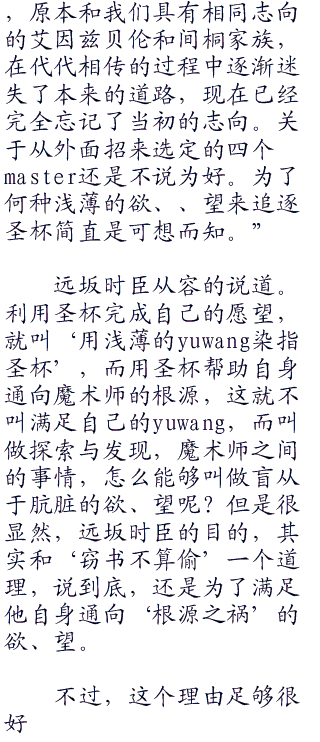 ，原本和我们具有相同志向
的艾因兹贝伦和间桐家族，
在代代相传的过程中逐渐迷
失了本来的道路，现在已经
完全忘记了当初的志向。关
于从外面招来选定的四个
master还是不说为好。为了
何种浅薄的欲、、望来追逐
圣杯简直是可想而知。”
远坂时臣从容的说道。
利用圣杯完成自己的愿望，
就叫‘用浅薄的yuwang染指
圣杯’，而用圣杯帮助自身
通向魔术师的根源，这就不
叫满足自己的yuwang，而叫
做探索与发现，魔术师之间
的事情，怎么能够叫做盲从
于肮脏的欲、望呢？但是很
显然，远坂时臣的目的，其
实和‘窃书不算偷’一个道
理，说到底，还是为了满足
他自身通向‘根源之祸’的
欲、望。
不过，这个理由足够很
好